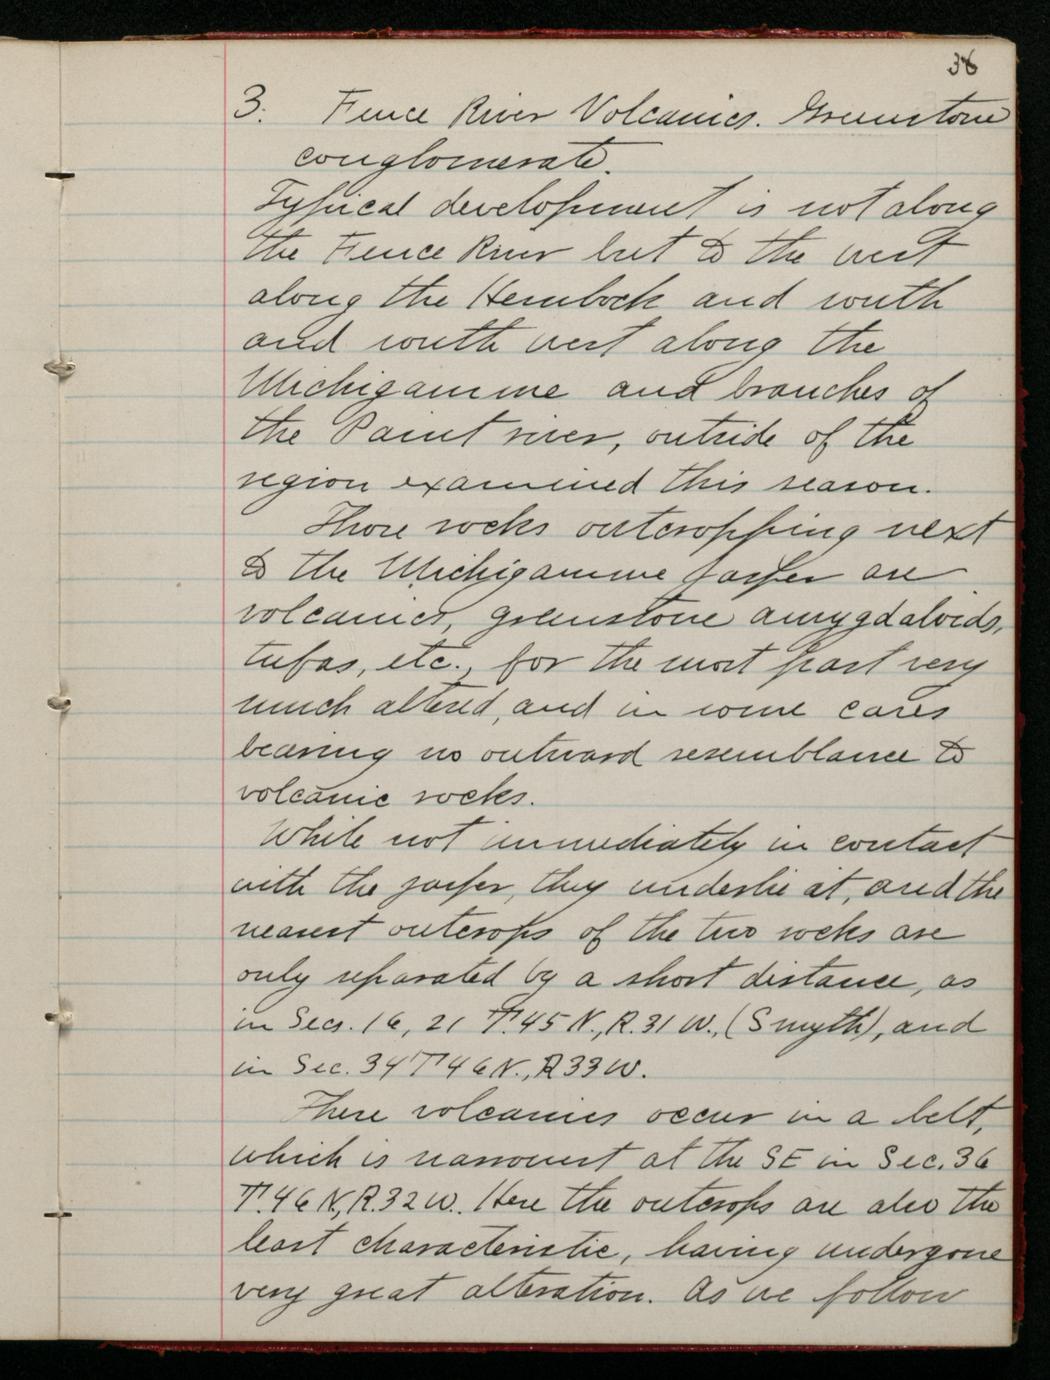 36
3. Fence River Volcanics. Greenstone
conglomerate.
Typical development is not along
the Fence River but to the west
along the Hemlock and south
and south west along the
Michigamme and branches of
the Paint river, outside of the
region examined this season.
Those rocks outcropping next
to the Michigamme jasper are
volcanics, greenstone amygdaloids,
tufas, etc., for the most part very
much altered, and in some cases
bearing no outward resemblance to
volcanic rocks.
While not immediately in contact
with the jasper, they underlie it, and the
nearest outcrops of the two rocks are
only separated by a short distance, as
in Secs. 16, 21 T.45 N., R.31 W., (Smyth), and
in Sec. 34 T46N., R33W.
These volcanics occur in a belt,
which is narrowest at the SE in Sec. 36
T.46 N., R.32 W. Here the outcrops are also the
least characteristic, having undergone
very great alteration. As we follow